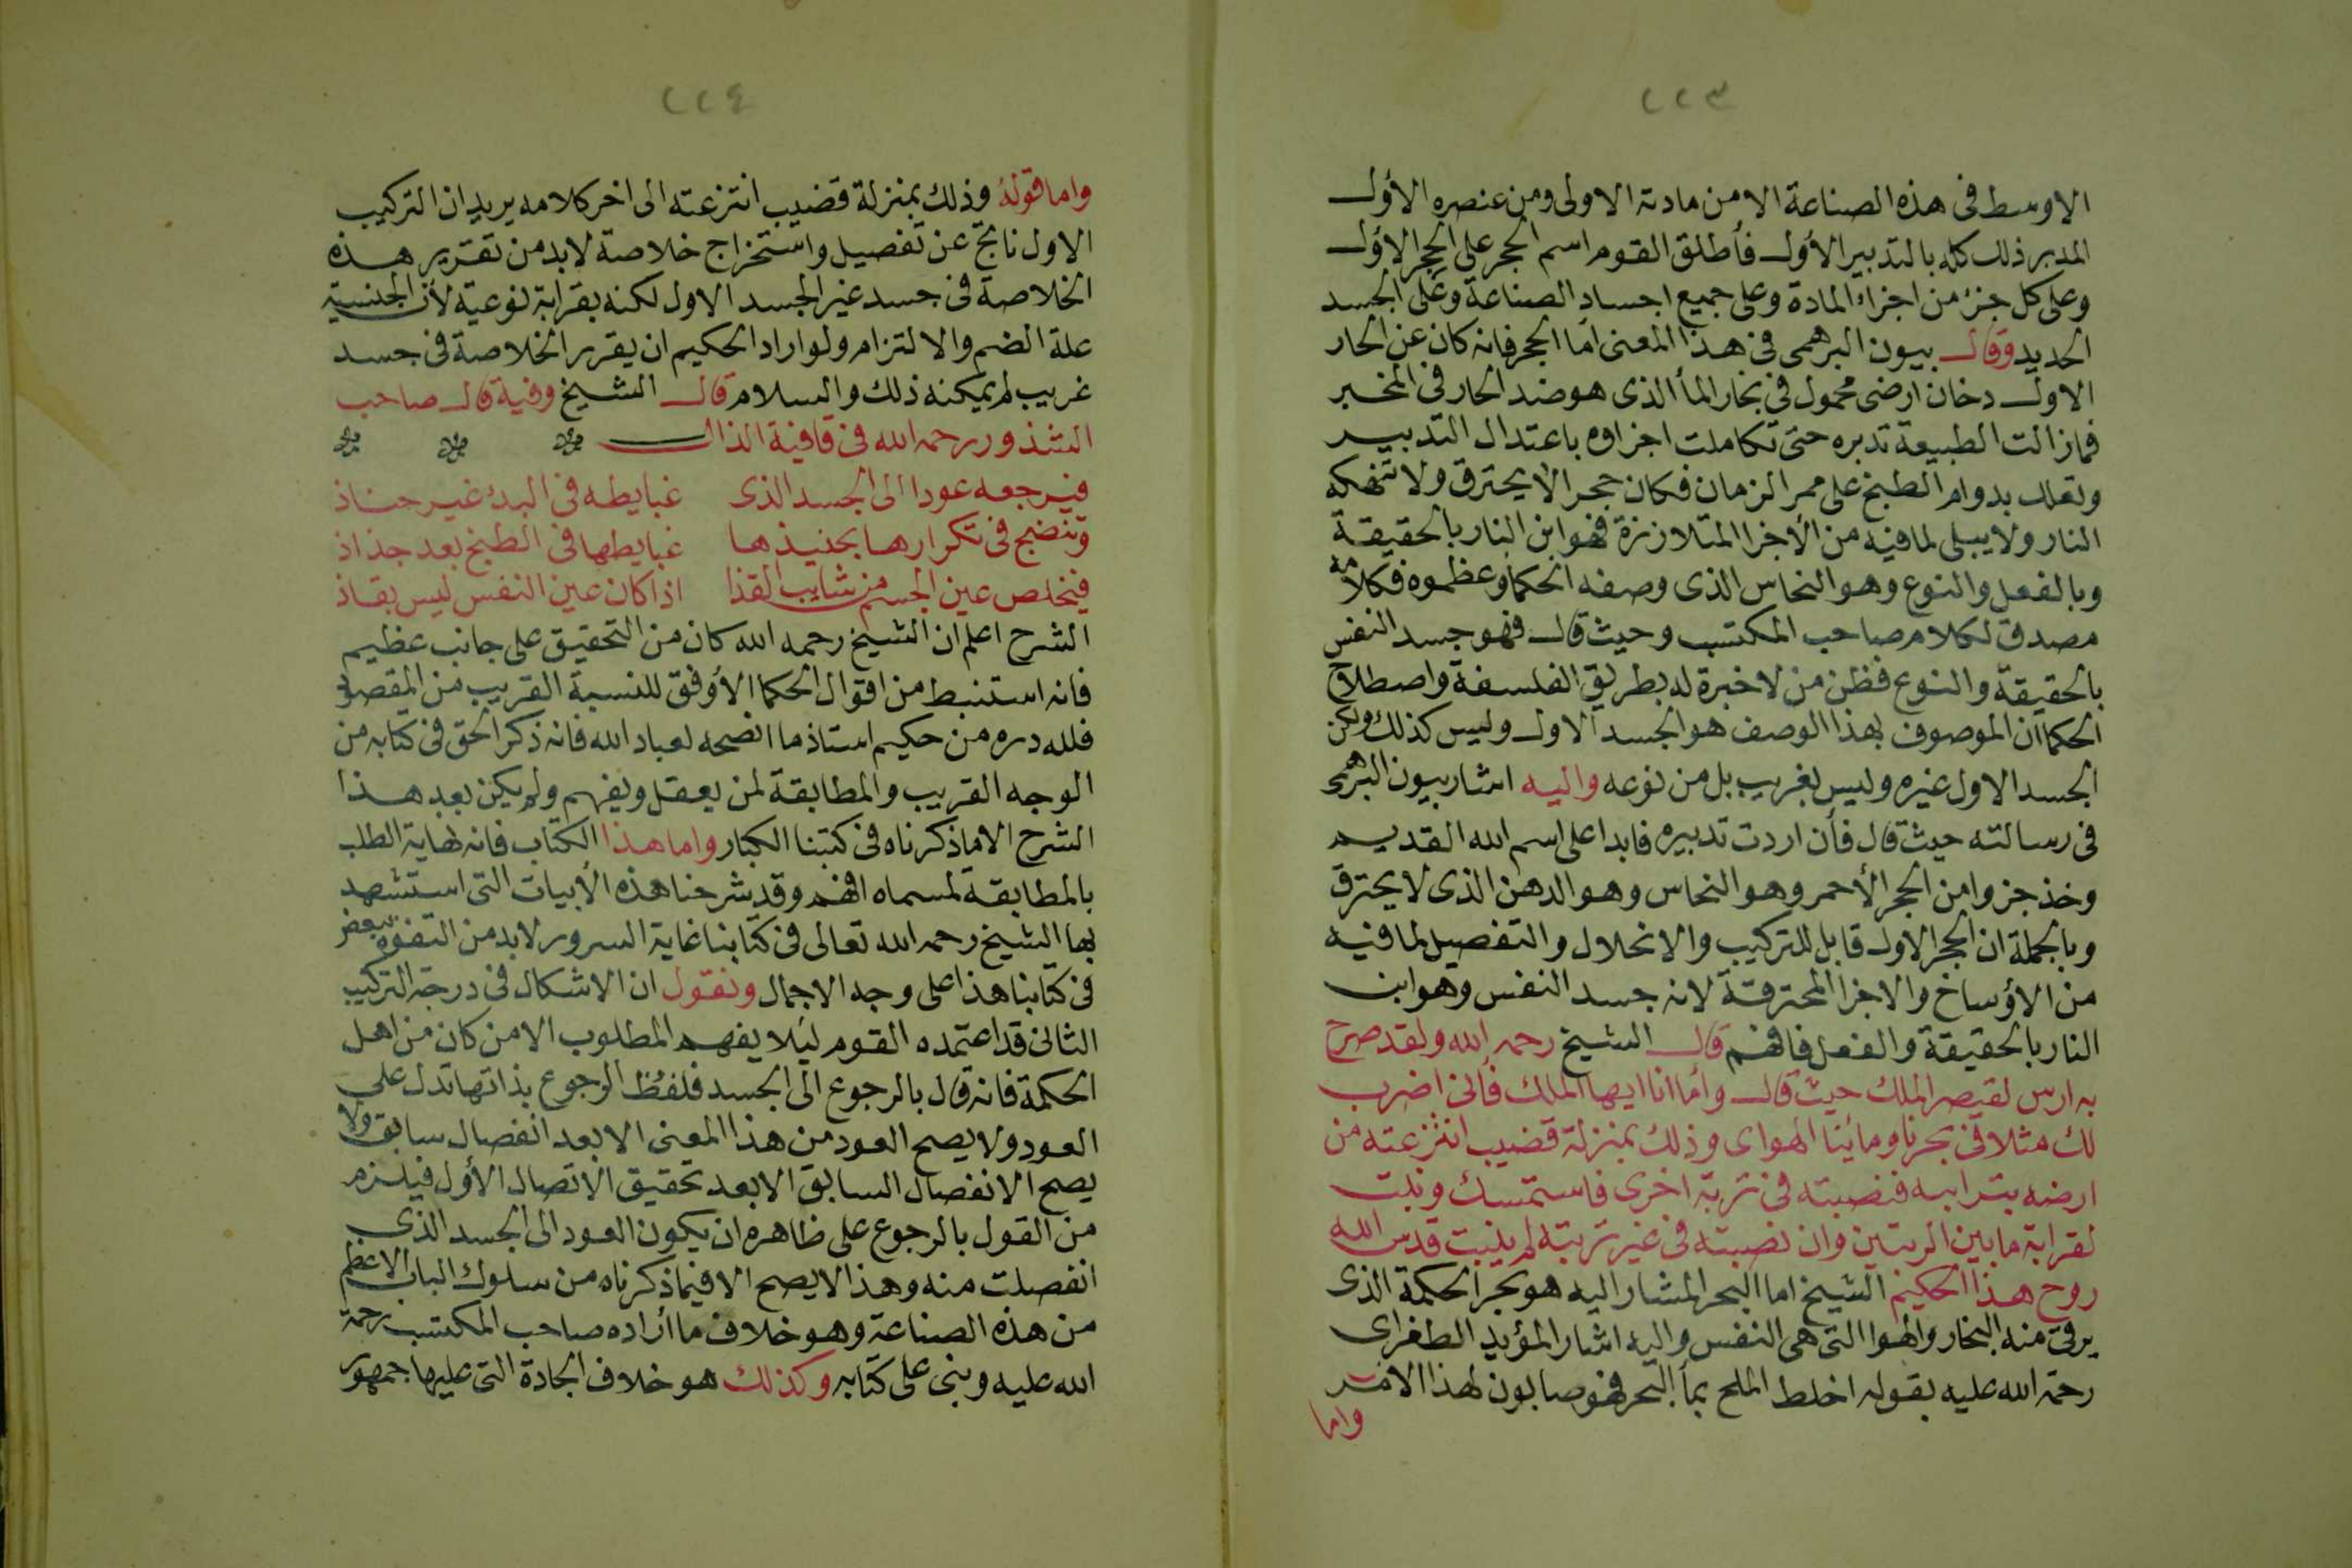 ٢٢٣
الاوسط فى هذه الصناعة الا من مادته الاولى ومن عنصره الأول
المدبر ذلك كله بالتدبير الأول فأطلق القوم اسم الحجر على الحجر الاؤل
وعلى كل جزء من اجزاء المادة وعلى جميع اجساد الصناعة وعلى الجسد
الجديد وقال بيون البرهمى فى هذا المعنى اما الحجر فانه كان عن الحار
الاول دخان ارضى محمول فى بخار المأ الذى هو ضد الحار فى المخبر
فمازالت الطبيعة تدبره حتى تكاملت اجزاوه باعتدال التدبير
وتعلك بدوام الطبخ على ممر الزمان فكان حجرا لا يحترق ولا تنهكه
النار ولا يبلى لما فيه من الأجزا المتلاززة فهو ابن النار بالحقيقة
وبالفعل والنوع وهو النحاس الذى وصفه الحكما وعظموه فكلامه
مصدق لكلام صاحب المكتسب وحيث قال فهو جسد النفس
بالحقيقة والنوع فظن من لا خبرة له بطريق الفلسفة واصطلاح
الحكما ان الموصوف بهذا الوصف هو الجسد الاول وليس كذلك ولكن
الجسد الاول غيره وليس بغريب بل من نوعه واليه اشار بيون البرهمى
فى رسالته حيث قال فأن اردت تدبيره فابدا على اسم الله القديم
وخذ جزوا من الحجر الأحمر وهو النحاس وهو الدهن الذى لا يحترق
وبالجملة ان الحجر الاول قابل للتركيب والانحلال والتفصيل لما فيه
من الأوساخ والاجزا المحترقة لانه جسد النفس وهو ابن
النار بالحقيقة والفعل فافهم قال الشيخ رحمه الله ولقد صرح
به ارس لقيصر الملك حيث قال وأما انا ايها الملك فأنى اضرب
لك مثلا فى بحرنا ومائنا الهواى وذلك بمنزلة قضيب انتزعته من
ارضه بترابه فنصبته فى تربة اخرى فاستمسك ونبت
لقرابة ما بين الربتين وان نصبته فى غير تربته لم ينبت قدس الله
روح هذا الحكيم الشيخ اما البحر المشار اليه هو بحر الحكمة الذى
يرقى منه البخار والهوا التى هى النفس واليه اشار المؤيد الطغراى
رحمة الله عليه بقوله اخلط الملح بمأ البحر فهو صابون لهذا الامر
واما
٢٢٤
واما قوله وذلك بمنزلة قضيب انتزعته الى اخر كلامه يريد ان التركيب
الاول ناتج عن تفصيل واستخراج خلاصة لابد من تقرير هذه
الخلاصة فى جسد غير الجسد الاول لكنه بقرابة نوعية لأن الجنسية
علة الضم والالتزام ولو اراد الحكيم ان يقرر الخلاصة فى جسد
غريب لم يمكنه ذلك والسلام قال الشيخ وفيه قال صاحب
الشذور رحمه الله فى قافية الذال
فيرجعه عودا الى الجسد الذى غبايطه فى البدء غير حناذ
وتنضج فى تكرارها بحنيذها غبايطها فى الطبخ بعد جذاذ
فيخلص عين الجسم من شايب القذا اذا كان عين النفس ليس بقاذ
الشرح اعلم ان الشيخ رحمه الله كان من التحقيق على جانب عظيم
فانه استنبط من اقوال الحكما الأوفق للنسبة القريب من المقصود
فلله دره من حكيم استاذ ما انصحه لعباد الله فانه ذكر الحق فى كتابه من
الوجه القريب والمطابقة لمن يعقل ويفهم ولم يكن بعد هذا
الشرح الا ما ذكرناه فى كتبنا الكبار واما هذا الكتاب فانه نهاية الطلب
بالمطابقة لمسماه افهم وقد شرحنا هذه الأبيات التى استشهد
بها الشيخ رحمه الله تعالى فى كتابنا غاية السرور لابد من التفوه ببعض
فى كتابنا هذا على وجه الاجمال ونقول ان الاشكال فى درجة التركيب
الثانى قد اعتمده القوم ليلا يفهم المطلوب الا من كان من اهل
الحكمة فانه قال بالرجوع الى الجسد فلفظ الرجوع بذاتها تدل على
العود ولا يصح العود من هذا المعنى الا بعد انفصال سابق ولا
يصح الانفصال السابق الا بعد تحقيق الاتصال الأول فيلزم
من القول بالرجوع على ظاهره ان يكون العود الى الجسد الذى
انفصلت منه وهذا لا يصح الا فيما ذكرناه من سلوك الباب الاعظم
من هذه الصناعة وهو خلاف ما أراده صاحب المكتسب رحمة
الله عليه وبنى على كتابه وكذلك هو خلاف الجادة التى عليها جمهور